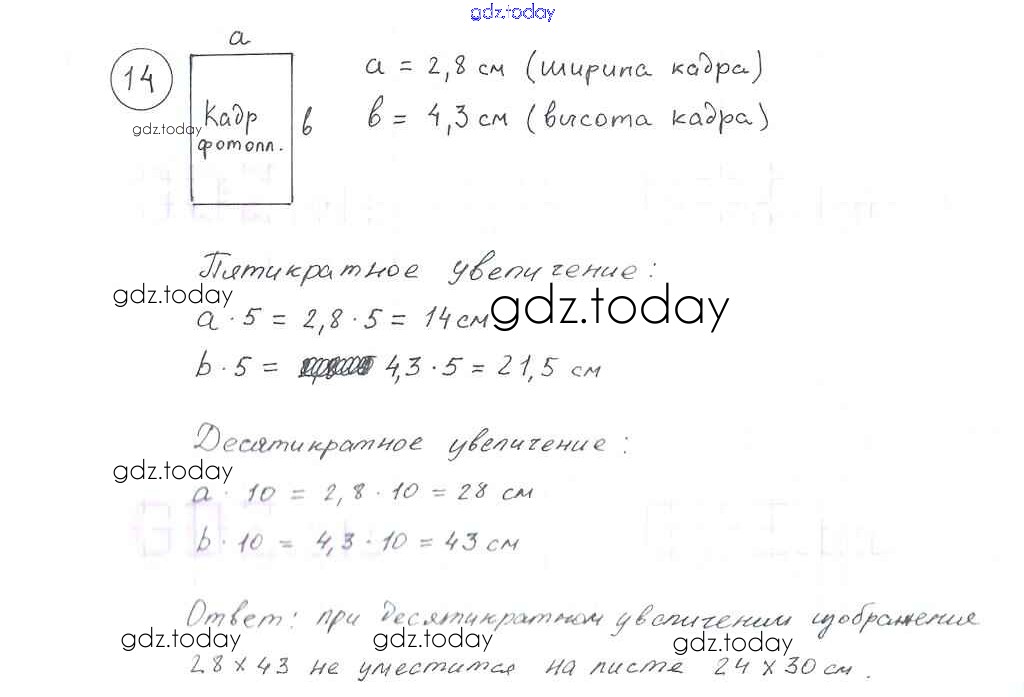 gdz.today
14
a
a = 2,8 см (ширина кадра)
Кадр
фотопл.
в
в = 4,3 см (высота кадра)
gdz.today
Пятикратное увеличение:
gdz.today
a · 5 = 2,8 · 5 = 14 см
gdz.today
b · 5 = 4,3 · 5 = 21,5 см
Десятикратное увеличение:
gdz.today
a · 10 = 2,8 · 10 = 28 см
b · 10 = 4,3 · 10 = 43 см
Ответ: при десятикратном увеличении изображения
gdz.today gdz.today gdz.today
28 x 43 не уместится на листе 24 x 30 см.